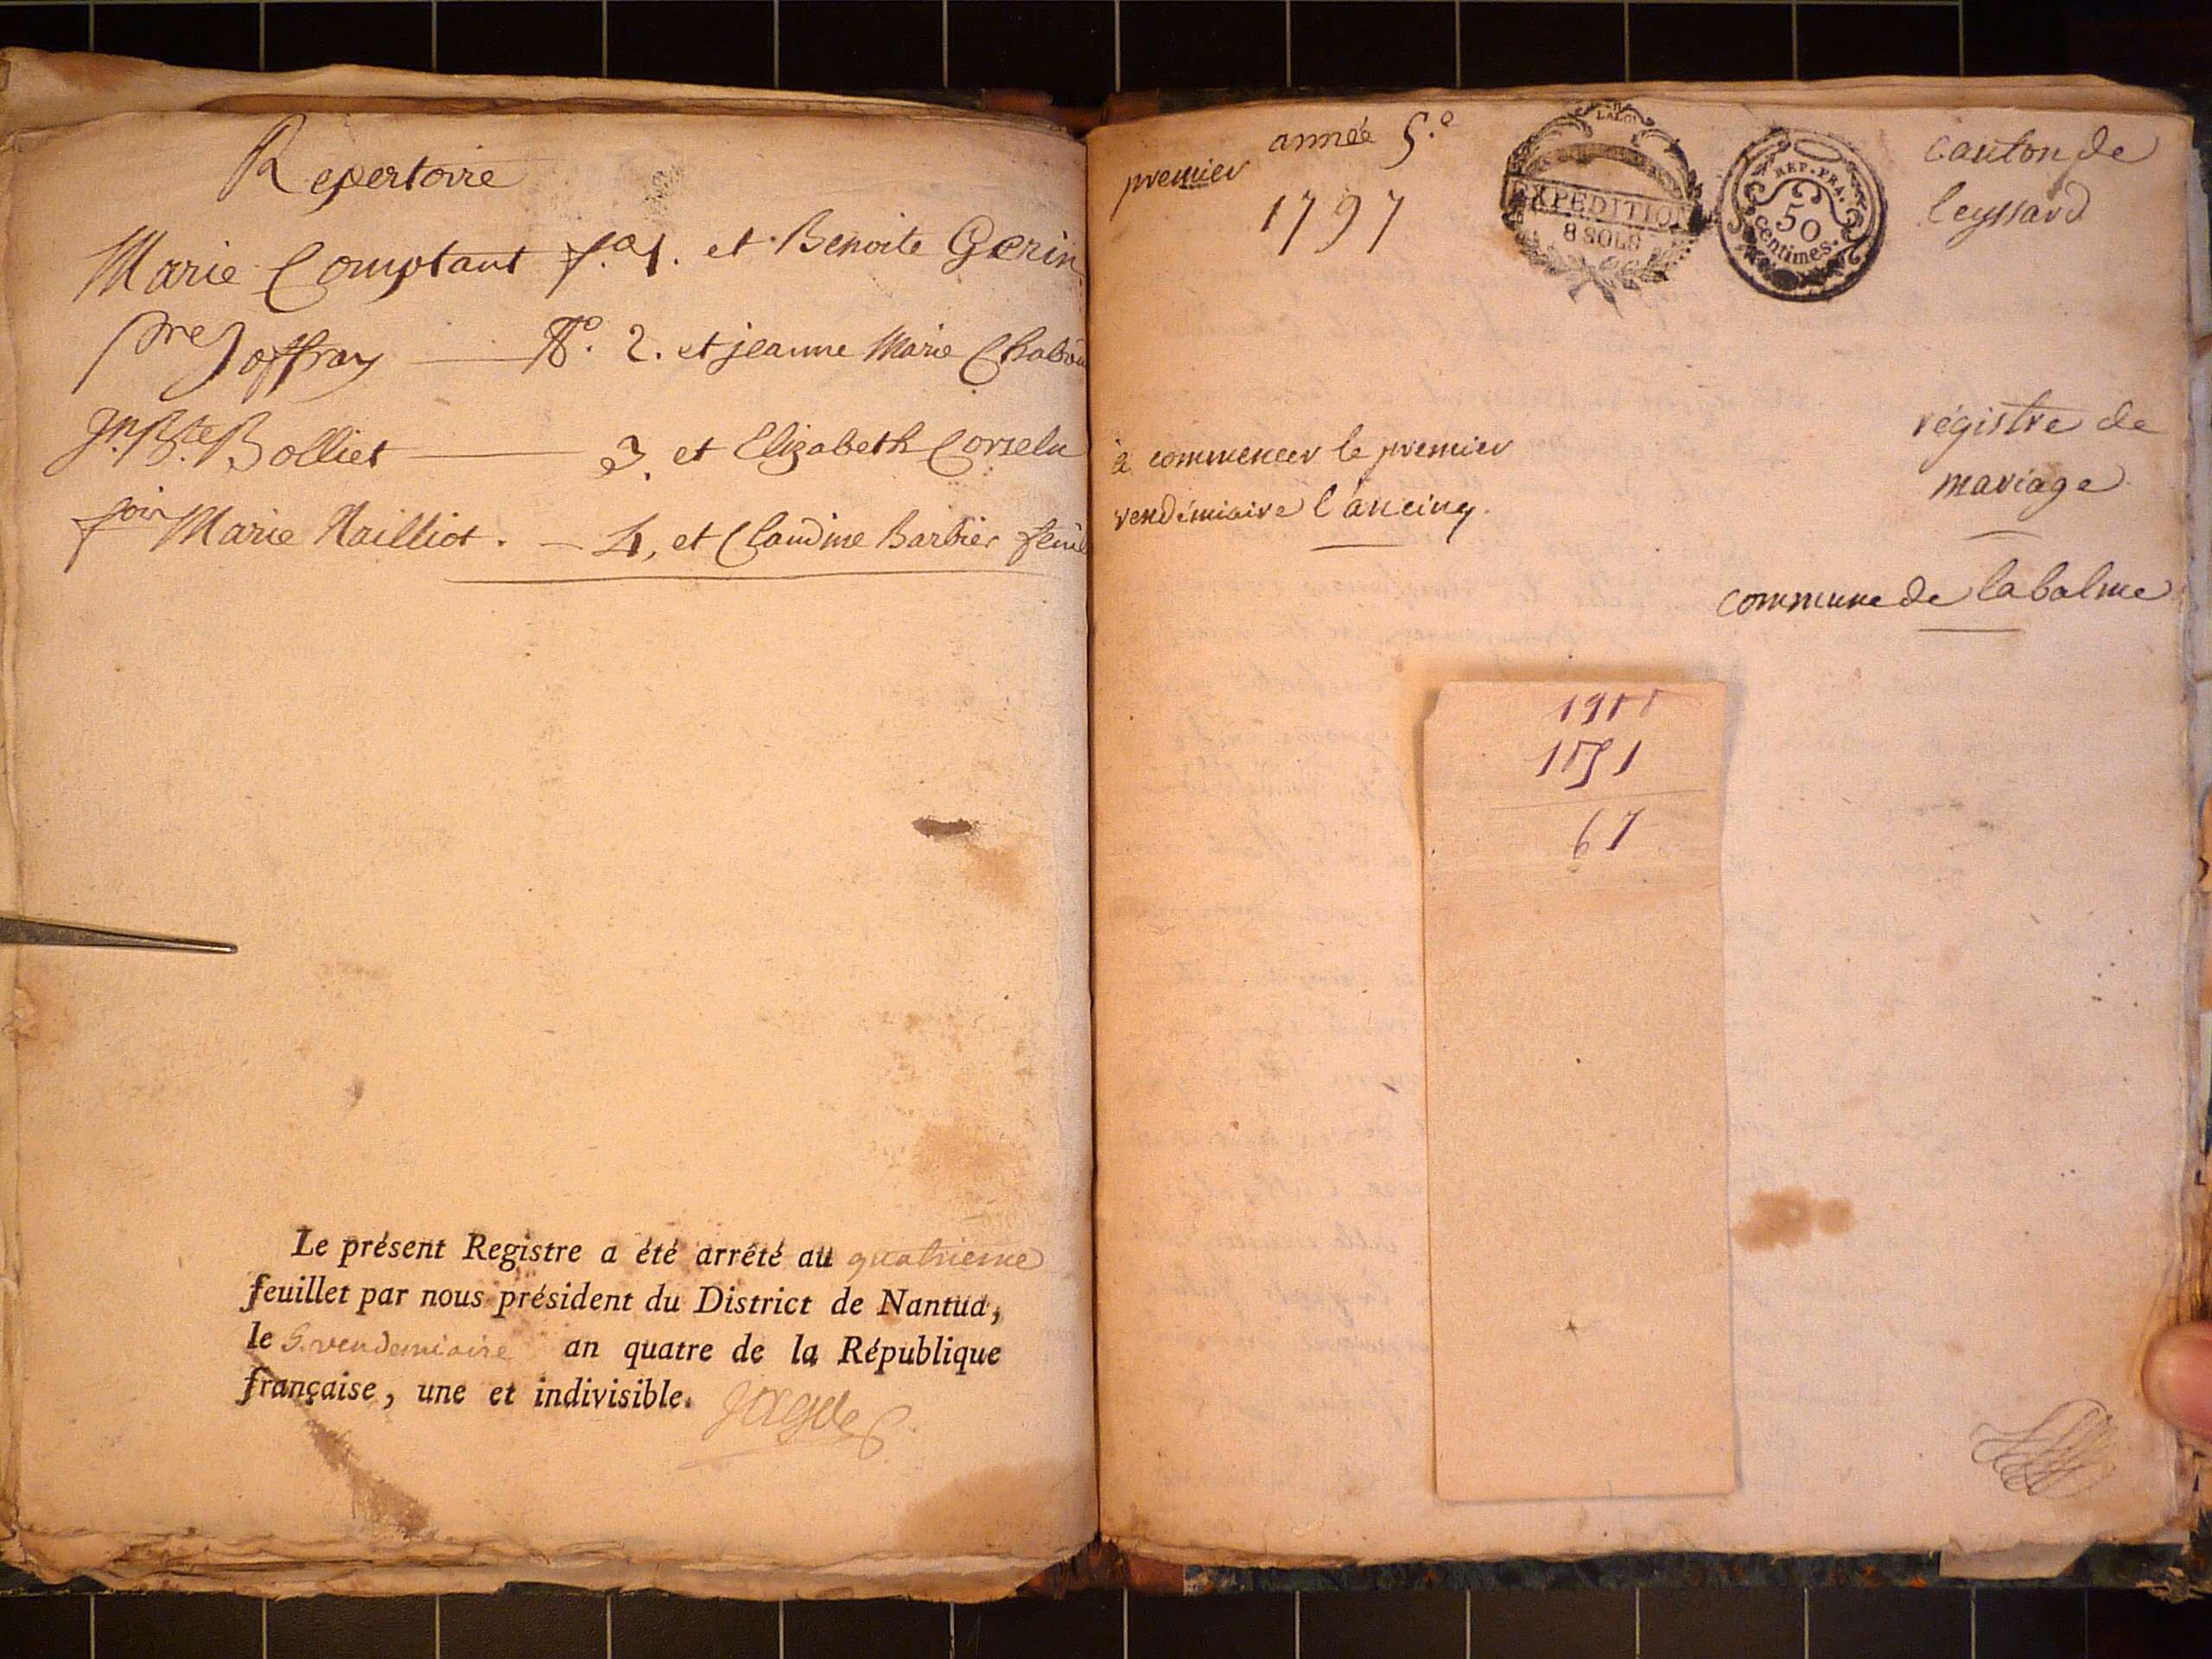 Repertoire
Marie Comptant f.o 1. et Benoite Gerin
pre Joffray — fo. 2. et jeanne Marie Chabou
Jn. Bte. Bolliet — 3. et Elizabeth
Marie Nailliot. — 4, et Claudine Barbier
Le présent Registre a été arrêté au quatrieme
feuillet par nous président du District de Nantua,
le 5. vendemiaire an quatre de la République
française, une et indivisible.
premier
année 5.e
1797
LA LOI
EXPEDITION
8 SOLS
REP. FRA.
50
centimes.
canton de
leyssard
régistre de
mariage
à commencer le premier
vendémiaire l'an cinq.
commune de labalme
67